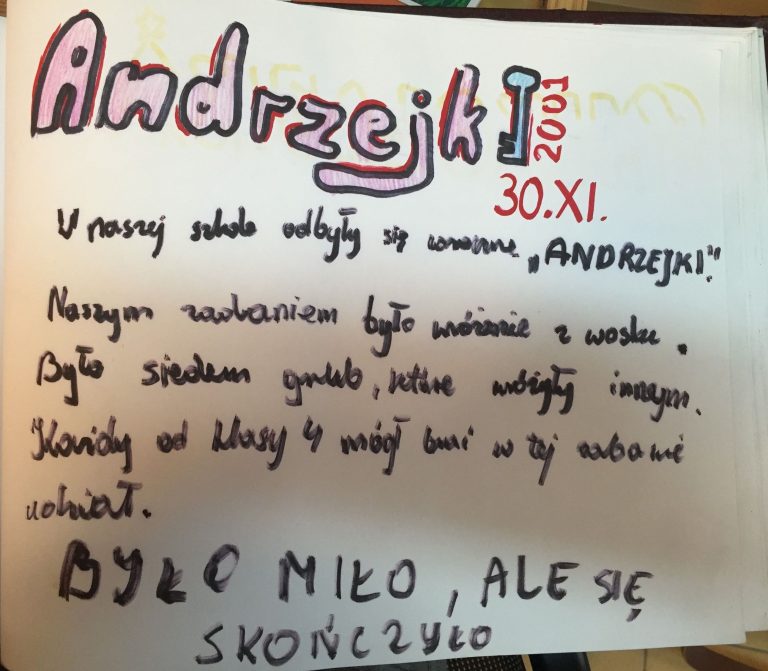 Andrzejki
2001
30.XI.
W naszej szkole odbyły się „ANDRZEJKI".
Naszym zadaniem było wróżenie z wosku.
Było siedem grup, które wróżyły innym.
Każdy od klasy 4 mógł brać w tej zabawie
udział.
BYŁO MIŁO, ALE SIĘ
SKOŃCZYŁO